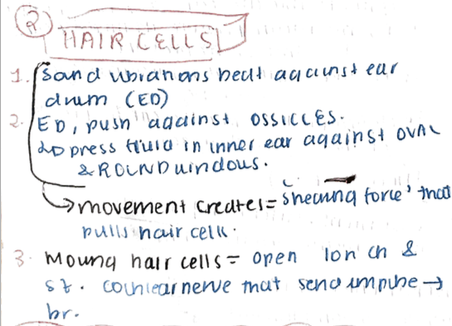 2 HAIR CELLS
1. Sound vibrations beat against ear
drum (ED)
2. ED, push against OSSICLES.
press fluid in inner ear against OVAL
& ROUND windows.
→ movement creates = 'shearing force' that
pulls hair cells.
3. Moving hair cells = open ion ch &
st. cochlear nerve that send impulse →
br.